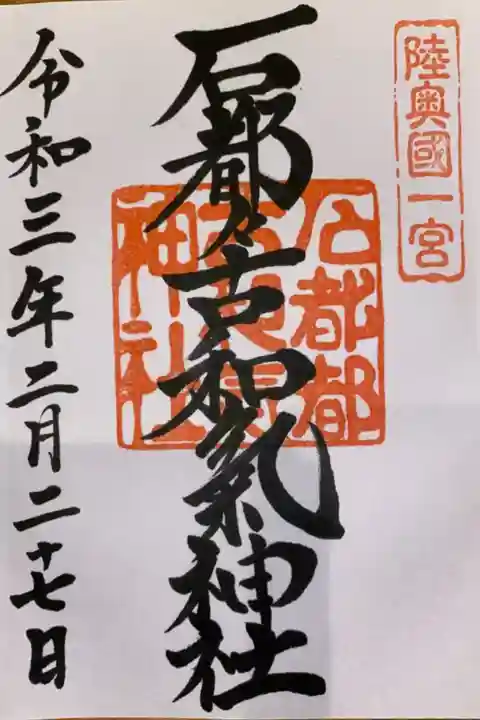 陸奥國一宮
石都々古和氣神社
石都都
古和氣
神社
令和三年二月二十七日